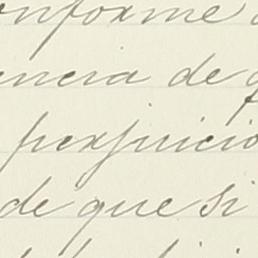 onforme
encia de
perjuicio
de que si